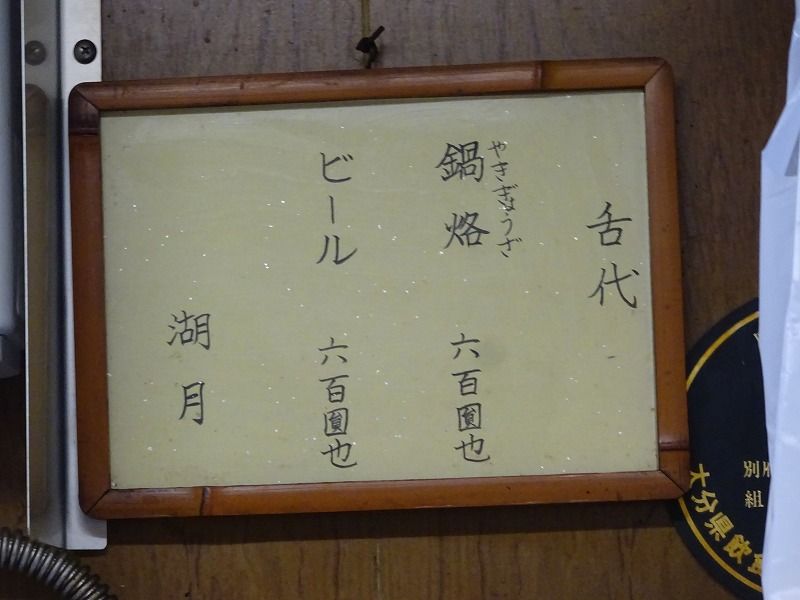 舌代
鍋烙 六百圓也
やきぎょうざ
ビール 六百圓也
湖月
別府
組
大分県飲食